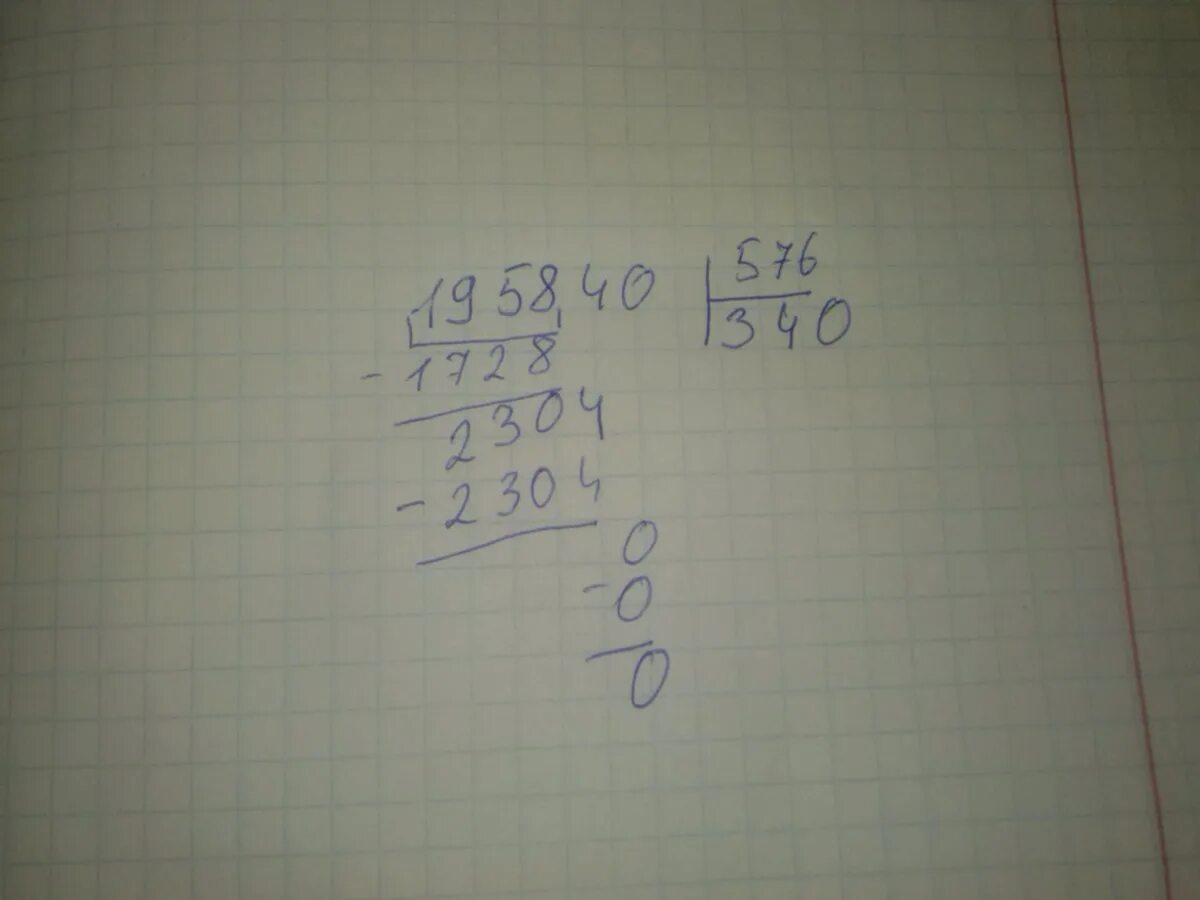 195840 576
340
-1728
2304
-2304
0
-0
0